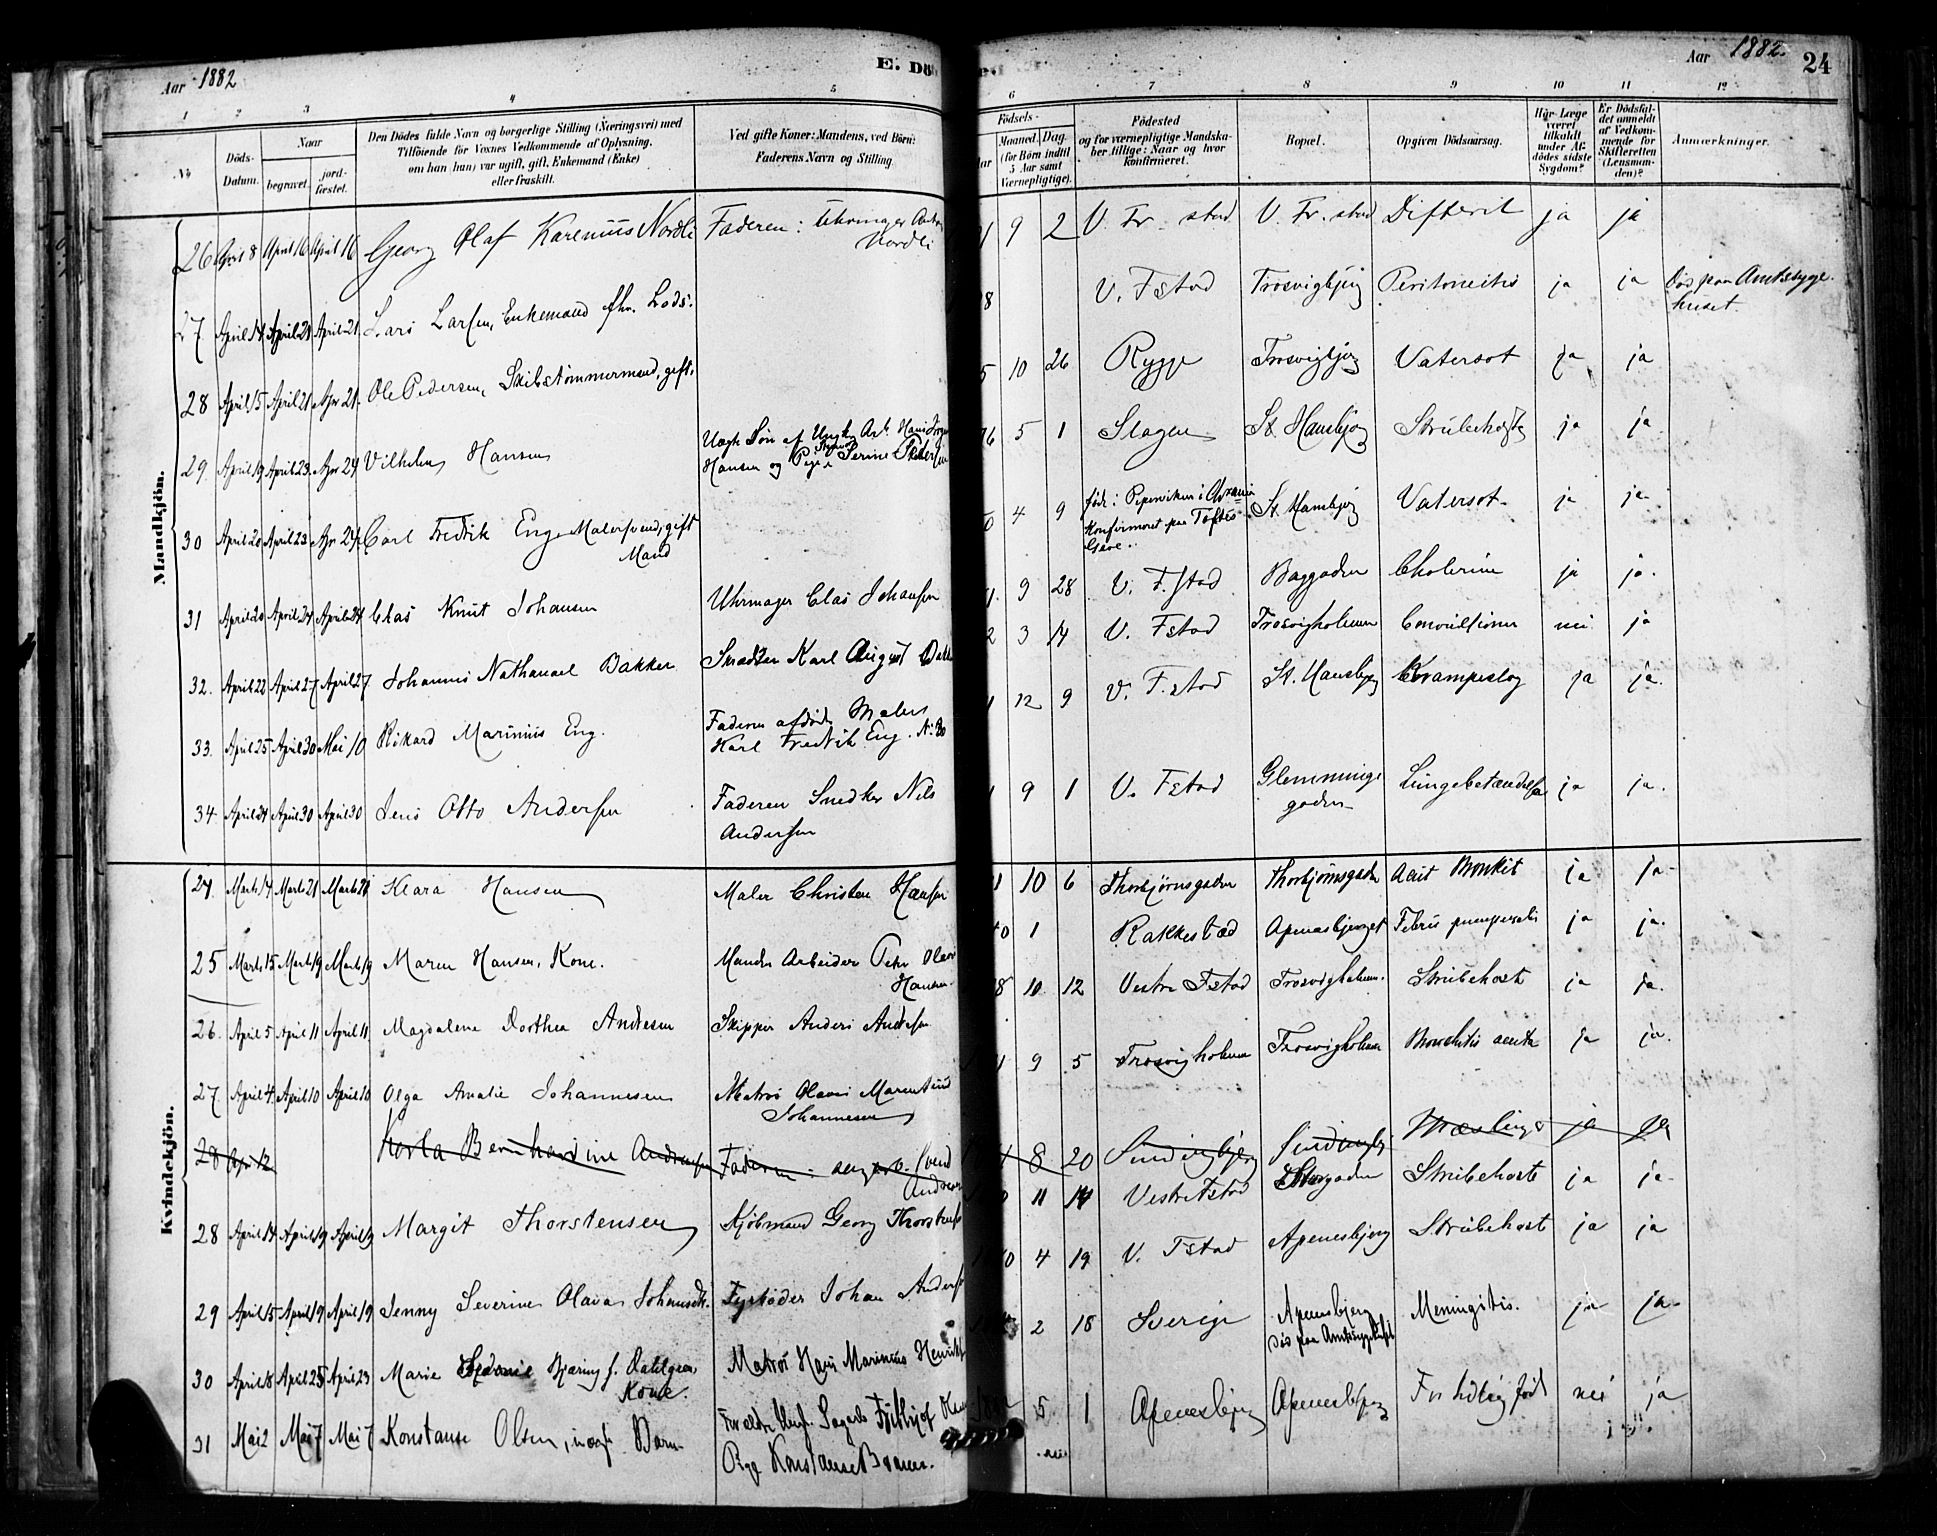 Aar 1882
E. Dö
Aar 1882.
24
1 2 3 4 5
6 7 8 9 10 11 12
No
Döds-Datum.
Naar
begravet.
jordfæstet.
Den Dödes fulde Navn og borgerlige Stilling (Næringsvei) med
Tilföiende för Voxnes Vedkommende af Oplysning,
om han (hun) var ugift, gift, Enkemand (Enke)
eller fraskilt.
Ved gifte Koner: Mandens, ved Börn:
Faderens Navn og Stilling.
Födsels-
Aar
Maaned. Dag.
(for Börn indtil
5 Aar samt
Værnepligtige).
Födested
og for værnepligtige Mandska-
ber tillige: Naar og hvor
konfirmeret.
Bopæl.
Opgiven Dödsaarsag.
Har Læge
været
tilkaldt
under Af-
dödes sidste
Sygdom?
Er Dödsfal-
det anmeldt
af Vedkom-
mende for
Skifteretten
(Lensman-
den)?
Anmærkninger.
Mandkjön.
26 April 8 April 16 April 16 Georg Olaf Karenius Nordli Faderen: Uhrmager Anton Nordli 9 2 V. Fr. stad V. Fr. stad Difterit ja ja
27 April 14 April 21 April 21 Lars Larsen, Enkemand fhv. Lods. 8 V. Fstad Trosvigbjerg Peritonitis ja ja Död paa Amtssygehuset.
28 April 15 April 21 Apr 21. Ole Pedersen, Skibstömmermand, gift. 5 10 26 Rygge Trosvigbjerg Vatersot ja ja
29 April 19 April 23. Apr 24 Vilhelm Hansen Uægte Sön af Ungk. Arb. Hans Hansen og Pige Serine Pedersen 76 5 1 Slagen St. Hansbjerg Strubehoste ja ja
30 April 20 April 23 Apr 24 Carl Fredrik Eng Malersvend, gift Mand 4 9 Född i Pipervigen i Konfirmeret paa Toftes Gave. St. Hansbjerg Vatersot ja ja
31 April 20 April 24 April 24 Clas Knut Johansen Uhrmager Clas Johansen 9 28 V. F.stad Baggaden Cholerine ja ja.
32. April 22 April 27 April 27 Johannes Nathanael Bakker Snedker Karl August 2 3 14 V. Fstad Trosvigholmen Convultioner nei ja
33. April 25 April 30 Mai 10 Rikard Marinius Eng. Faderen afdöde Maler Karl Fredrik Eng. 12 9 V. F.stad St. Hansbjerg Krampeslag ja ja.
34. April 24 April 30 April 30 Jens Otto Andersen Faderen Snedker Nils Andersen 9 1 V. Fstad Glemminge gaden Lungebetændelse ja ja.
Kvindekjön.
24. Marts 14 Marts 21 Marts 21 Klara Hansen Maler Christen Hansen 1 10 6 Thorbjørnsgaden Thorbjörnsgaden Acut Bronkit ja ja
25 Marts 15 Marts 19 Marts 19 Maren Hansen, Kone. Manden Arbeider Peter Olaves Hansen 40 1 Rakkestad Apenæsbjerget Febris puerperalis ja ja.
26. April 5 April 11 April 11 Magdalene Dorthea Andresen Skipper Anders Andresen 8 10 12 Vestre Fstad Trosvigholmen. Strubehoste ja ja.
27 April 4 April 10 April 10 Olga Amalie Johannesen Matros Olaves Johannesen 9 5 Trosvigholmen Trosvigholmen Bronchitis acuta ja ja.
28 Apr 12 Bernhardine Andreasen Faderen 8 20 Mæslinger ja ja
28 April 14 April 19 April 19 Margit Thorstensen Kjöbmand Georg Thorstensen 11 14 Vestre Fstad Storgaden Strubehoste ja ja
29 April 15 April 19 April 19 Jenny Severine Olava Johansdtr. Fyrböder Johan Andersen 4 19 V. Fstad Apenesbjerg Strubehoste ja ja
30 April 18 April 23 April 23 Marie Bjerring f. Dahlgren Kone. Matros Hans Marinius 2 18 Sverige Apenesbjerg Död paa Amtssygehuset Meningitis. ja ja
31 Mai 2 Mai 7 Mai 7 Konstanse Olsen, uægte Barn Pige Konstanse 5 1 Apenesbjerg Apenesbjerg For tidlig född nei ja